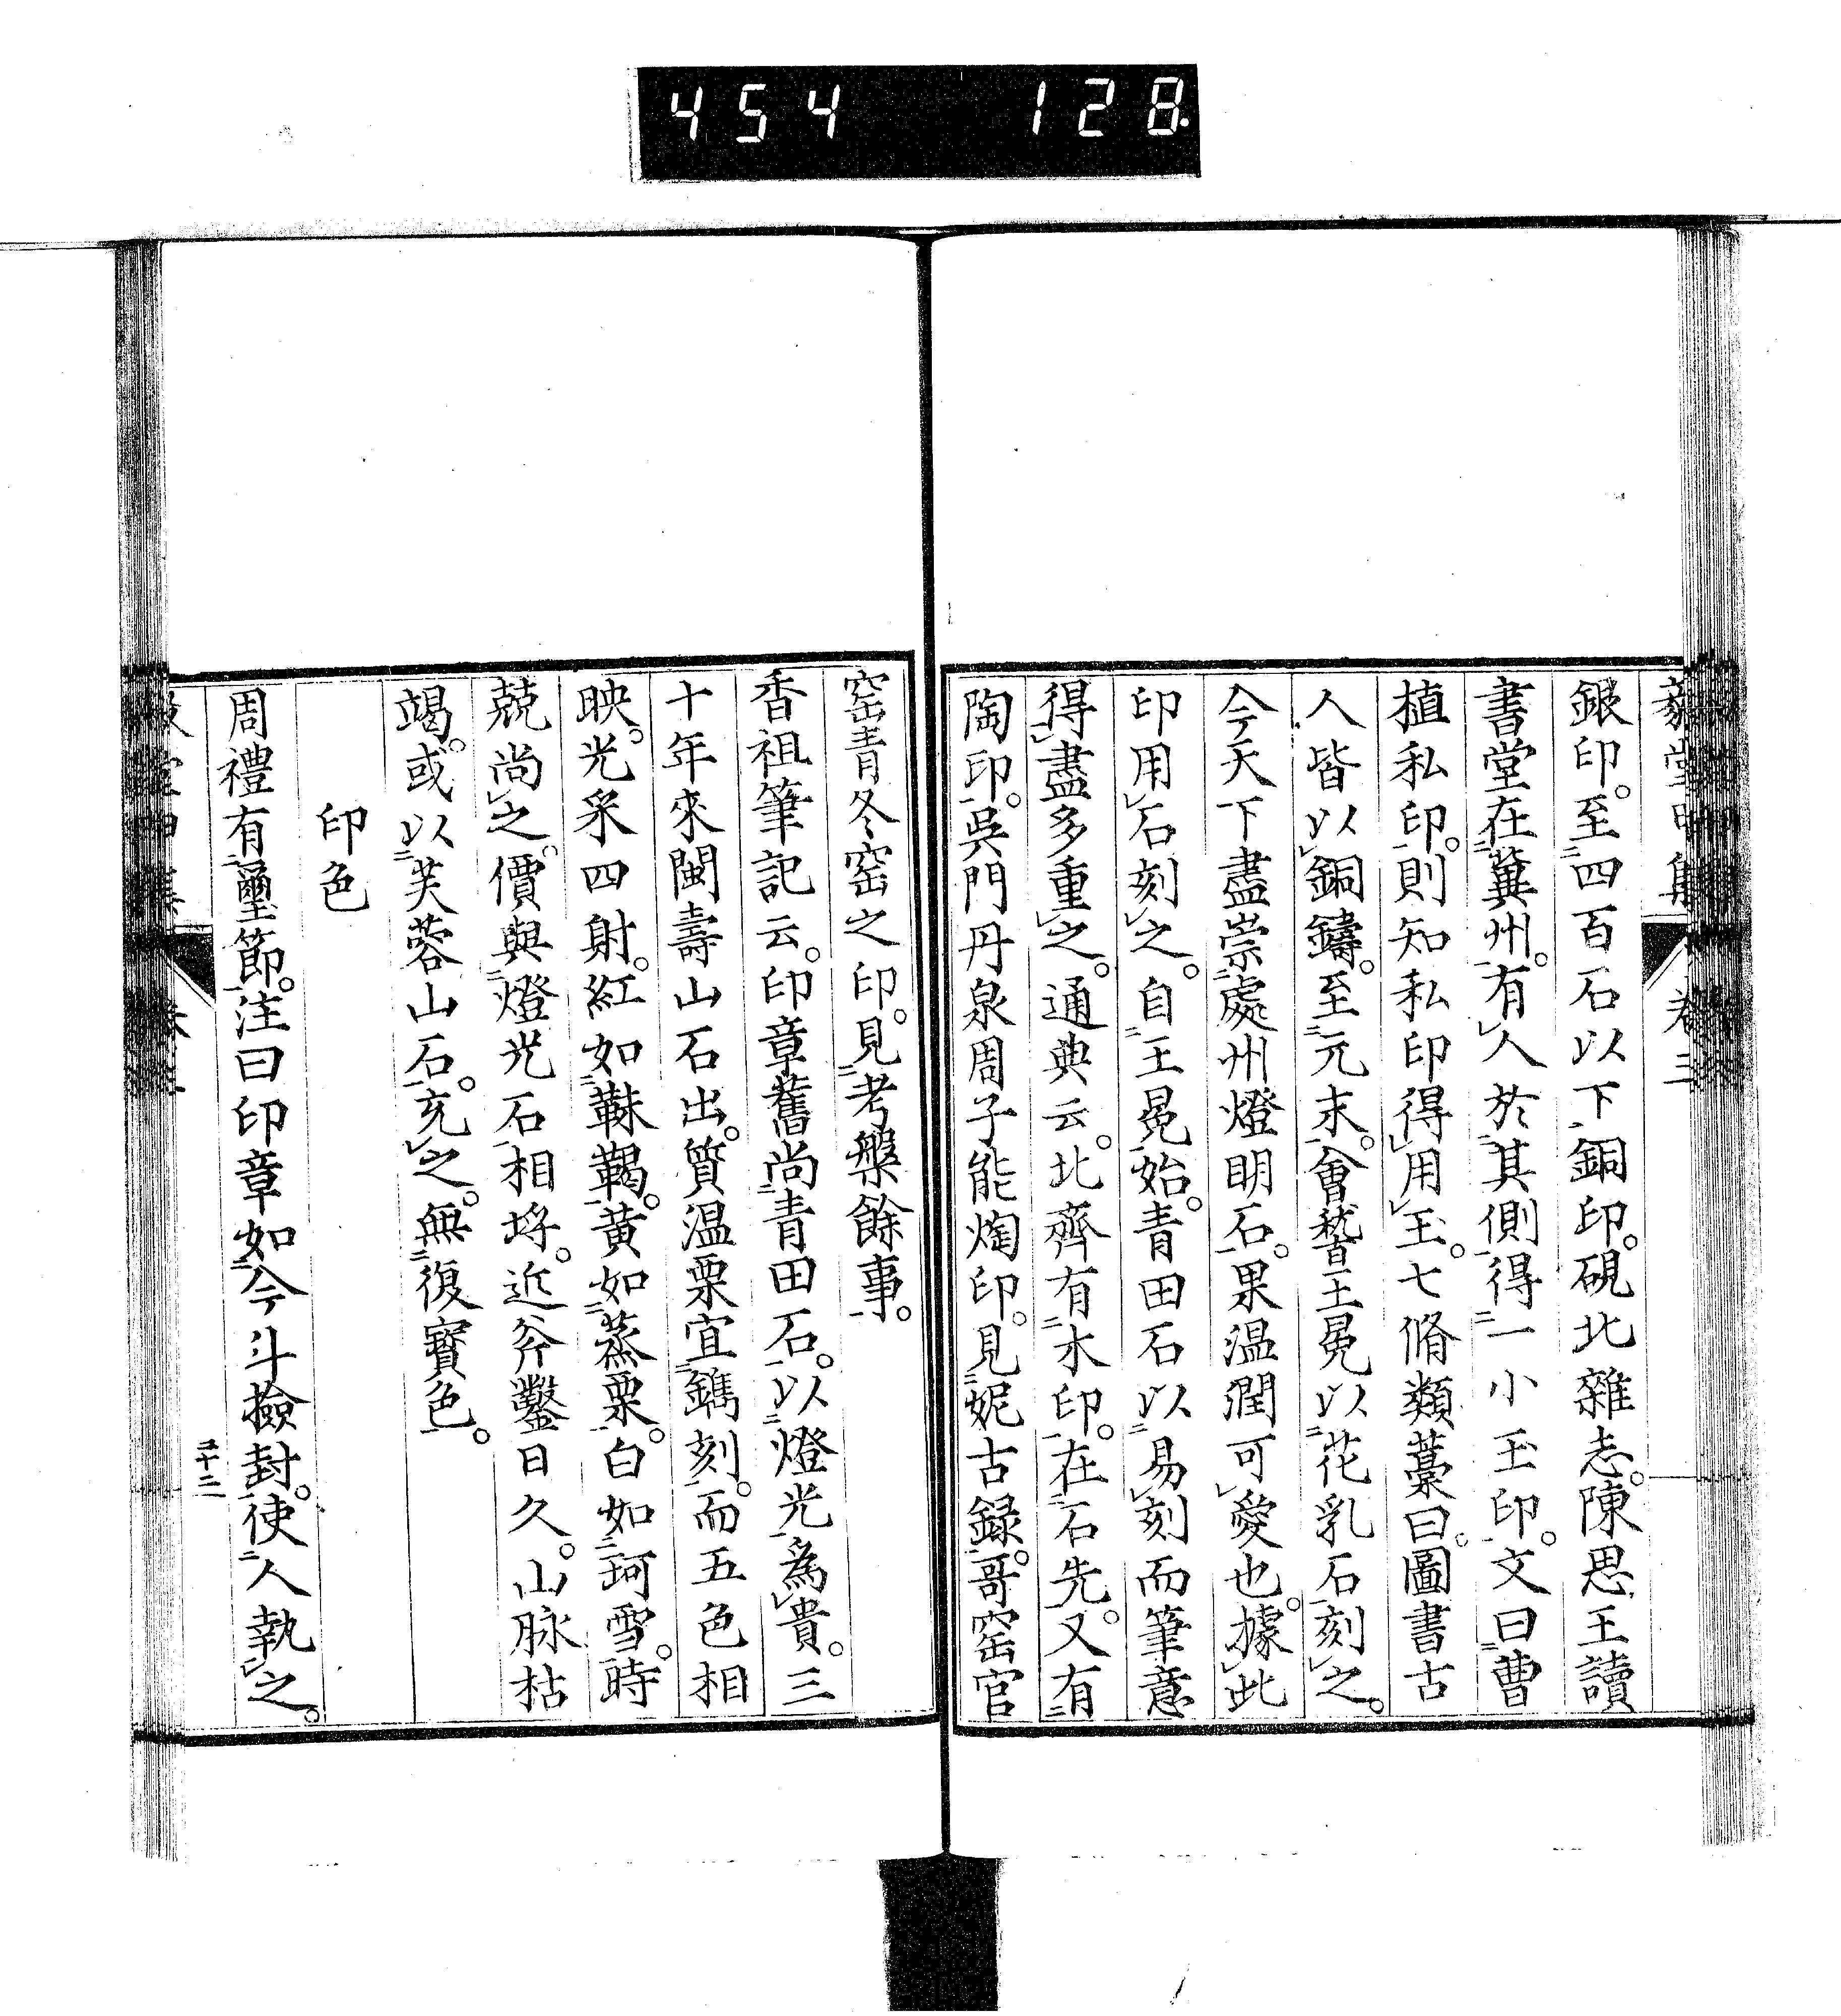 454 128
銀印。至四百石以下銅印。硯北雜志。陳思王讀
書堂在冀州。有人於其側得一小玉印。文曰曹
植私印。則知私印得用玉。七脩類藁曰。圖書古
人皆以銅鑄。至元末。會稽王冕以花乳石刻之。
今天下盡崇處州燈明石。果温潤可愛也。據此
印用石刻之。自王冕始。青田石以易刻而筆意
得盡多重之。通典云。北齊有木印。在石先。又有
陶印。吳門丹泉周子能熖印。見妮古録。哥窑官
窑青冬窑之印。見考槃餘事。
香祖筆記云。印章舊尚青田石。以燈光為貴。三
十年來閩壽山石出。質温栗宜鐫刻。而五色相
映。光采四射。紅如靺鞨。黄如蒸栗。白如珂雪。時
兢尚之。價與燈光石相埒。近斧鑿日久。山脉枯
竭。或以芙蓉山石。充之。無復寶色。
印色
周禮有璽節。注曰印章如今斗撿封。使人執之。